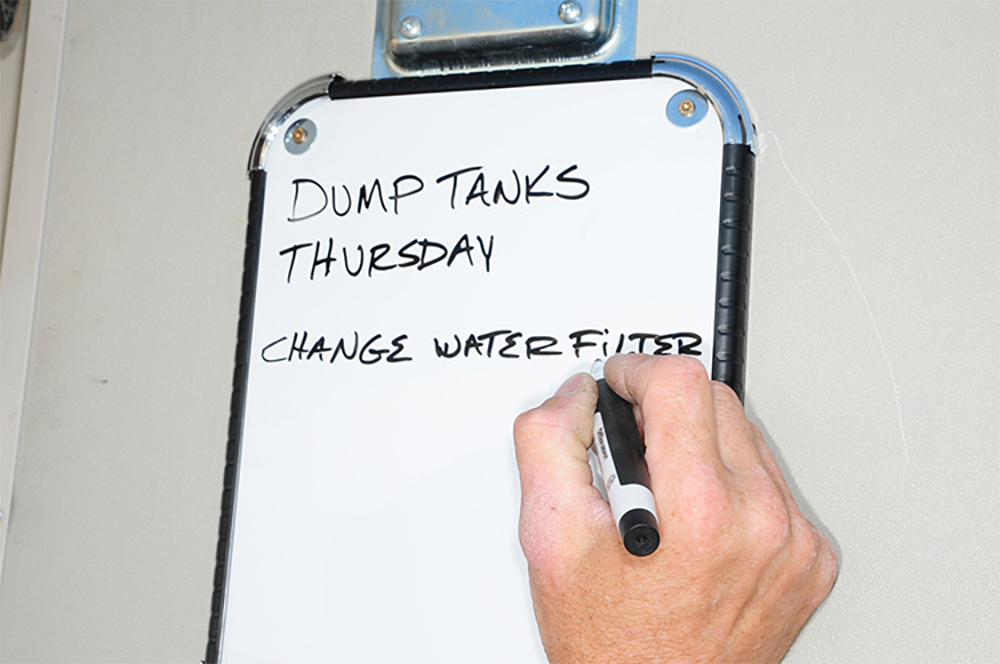 DUMP TANKS
THURSDAY
CHANGE WATER FiLTER